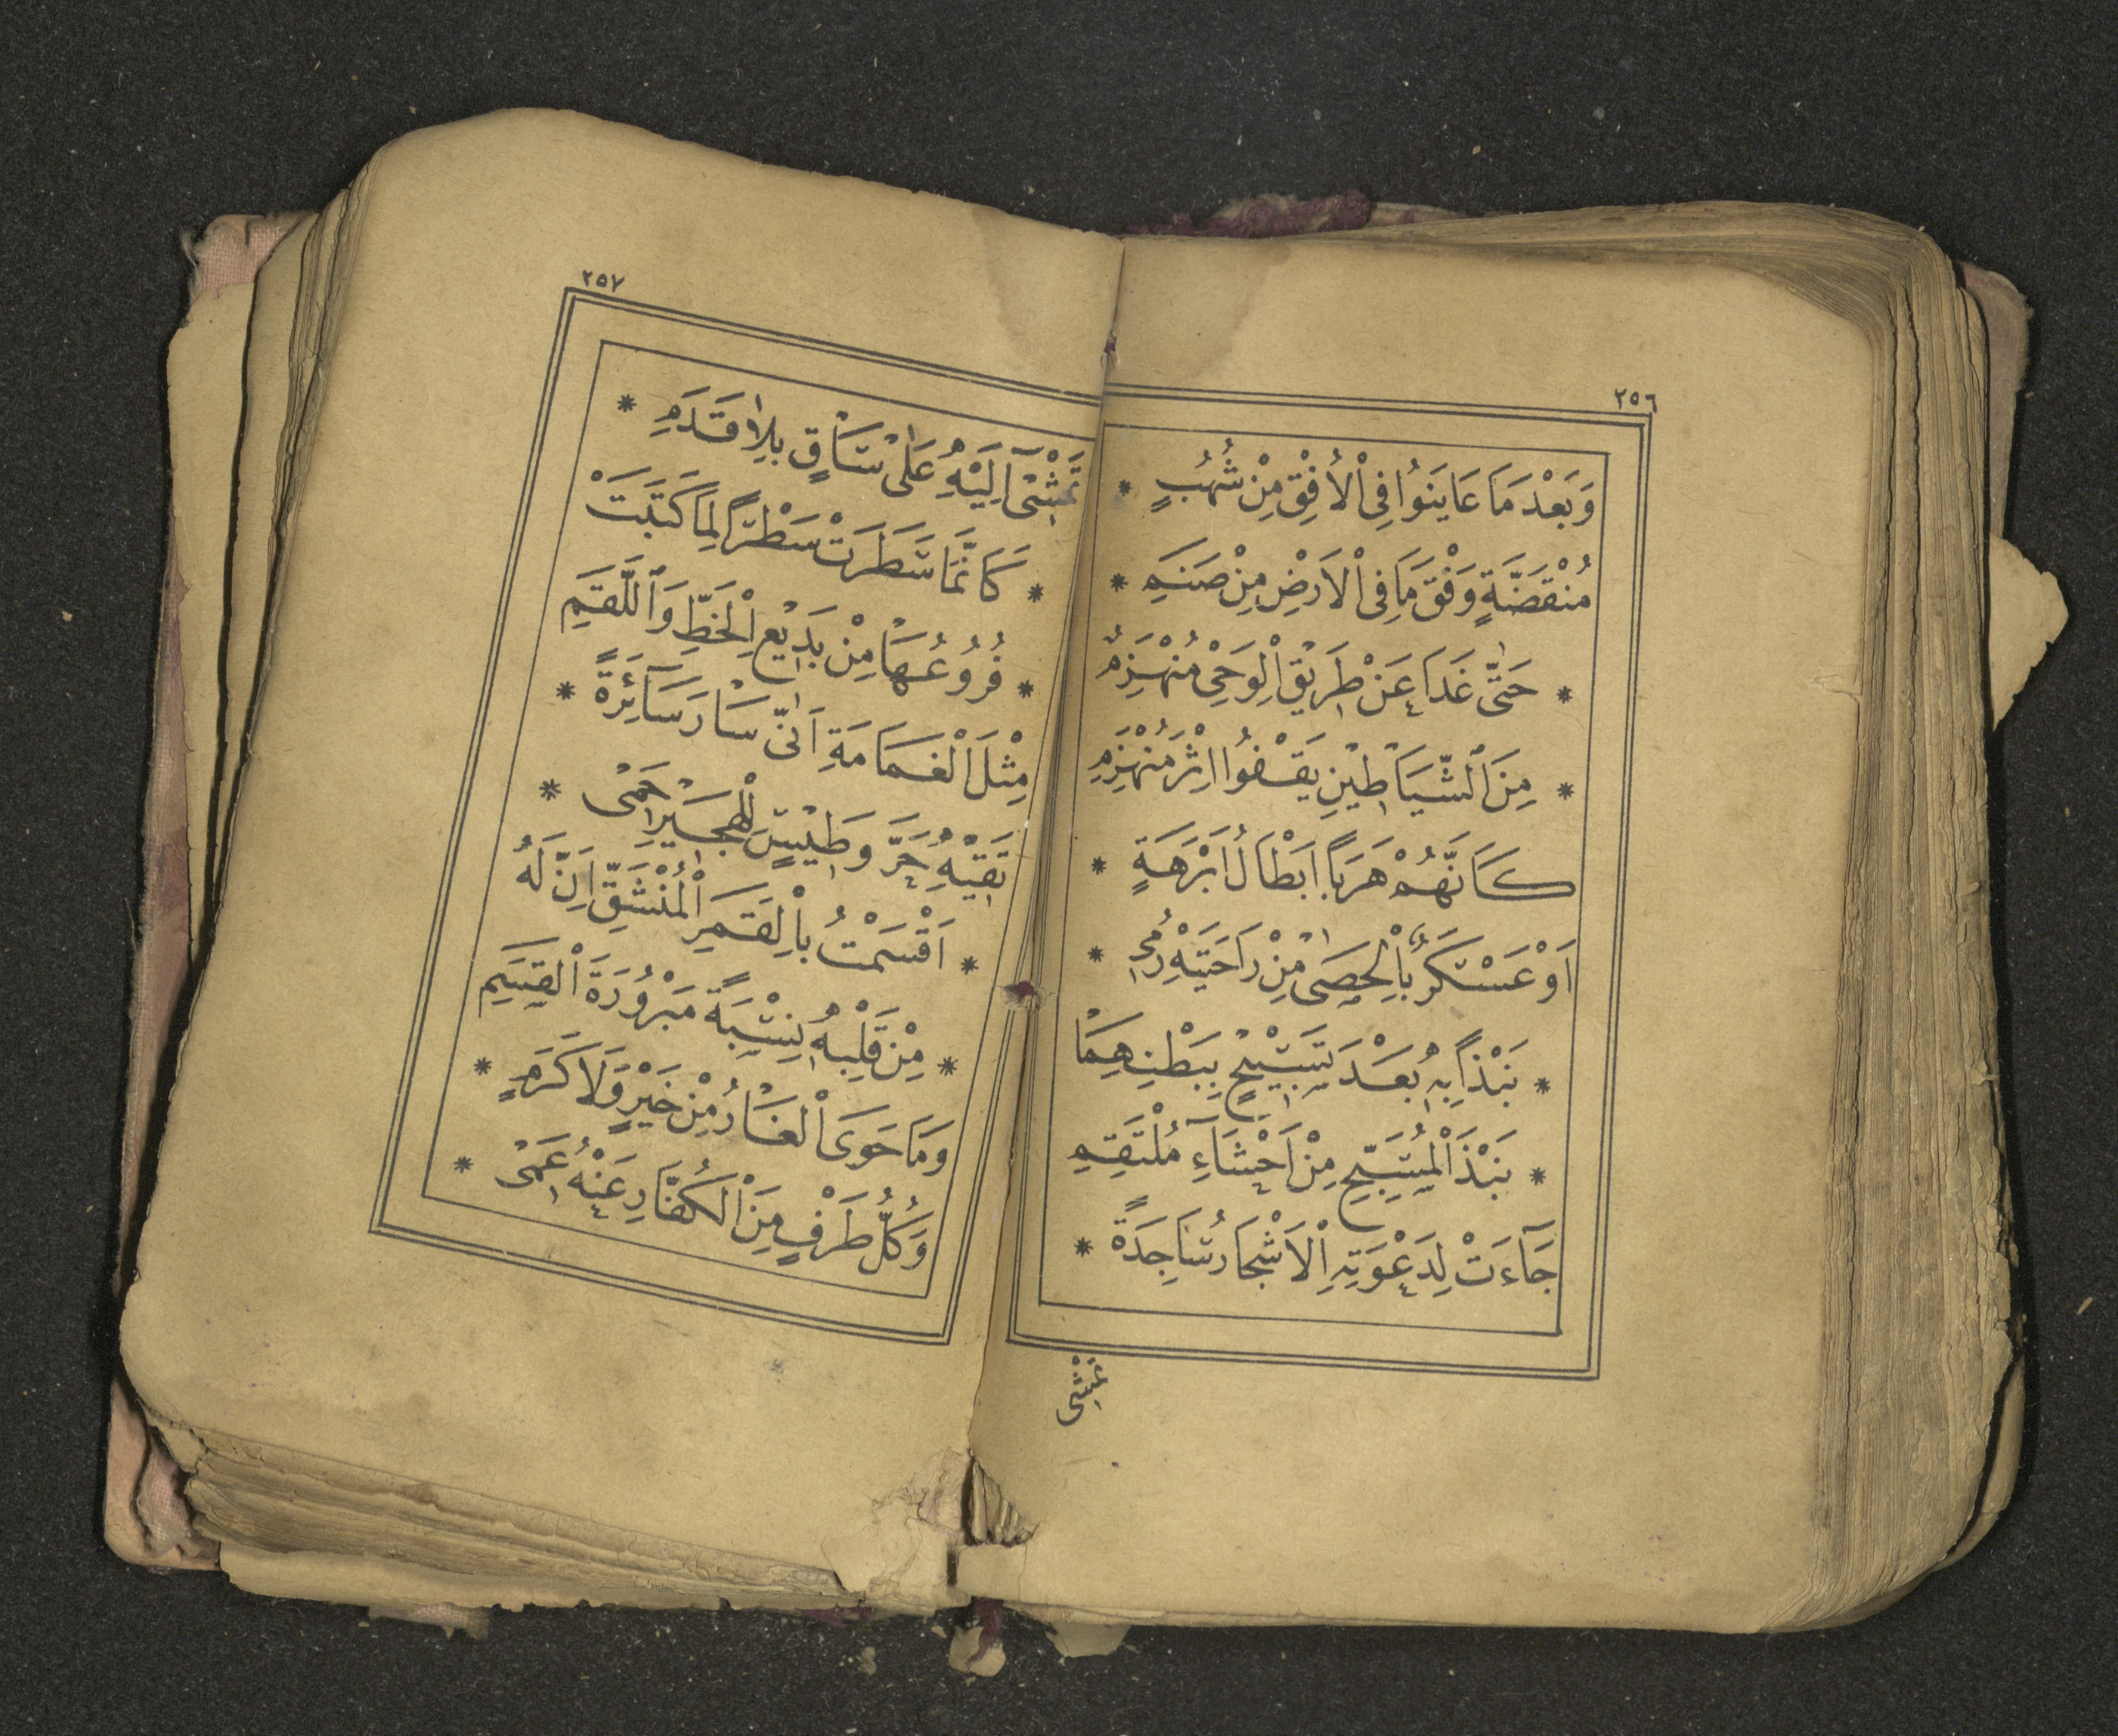 ٢٥٦
وَبَعْدَ مَا عَايَنُوا فِى الْاُفْقِ مِنْ شُهُبٍ *
مُنْقَضَّةٍ وَفْقَ مَا فِى الْاَرْضِ مِنْ صَنَمِ *
* حَتّٰى غَدَا عَنْ طَرِيْقِ الْوَحْىِ مُنْهَزِمٌ
* مِنَ الشَّيَاطِيْنِ يَقْفُوا اِثْرَ مُنْهَزِمِ
كَاَنَّهُمْ هَرَبًا اَبْطَالُ اَبْرَهَةٍ *
اَوْ عَسْكَرٌ بِالْحَصٰى مِنْ رَاحَتَيْهِ رُمِى *
* نَبْذًا بِهِ بَعْدَ تَسْبِيْحٍ بِبَطْنِهِمَا
* نَبْذَ الْمُسَبِّحِ مِنْ اَحْشَآءِ مُلْتَقِمِ
جَآءَتْ لِدَعْوَتِهِ الْاَشْجَارُ سَاجِدَةً *
تَمْشِى
٢٥٧
تَمْشِىْ اِلَيْهِ عَلٰى سَاقٍ بِلَا قَدَمِ *
* كَاَنَّمَا سَطَرَتْ سَطْرًا لِمَا كَتَبَتْ
* فُرُوْعُهَا مِنْ بَدِيْعِ الْخَطِّ وَاللَّقَمِ
مِثْلَ الْغَمَامَةِ اَنّٰى سَارَ سَآئِرَةً *
تَقِيْهِ حَرَّ وَطِيْسٍ لِلْهَجِيْرِ حَمِىْ *
* اَقْسَمْتُ بِالْقَمَرِ الْمُنْشَقِّ اِنَّ لَهُ
* مِنْ قَلْبِهِ نِسْبَةً مَبْرُوْرَةَ الْقَسَمِ
وَمَا حَوَى الْغَارُ مِنْ خَيْرٍ وَلَا كَرَمٍ *
وَكُلُّ طَرْفٍ مِنَ الْكُفَّارِ عَنْهُ عَمِىْ *